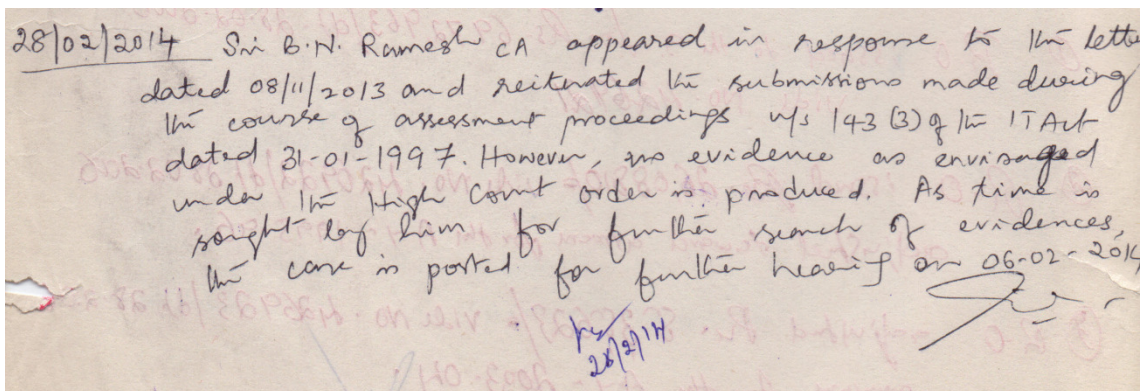 28/02/2014 Sri B.N. Ramesh CA appeared in response to the letter
dated 08/11/2013 and reiterated the submissions made during
the course of assessment proceedings u/s 143(3) of the IT Act
dated 31-01-1997. However, no evidence as envisaged
under the High Court order is produced. As time is
sought by him for further search of evidences,
the case is posted for further hearing on 06-02-2014
28/2/14